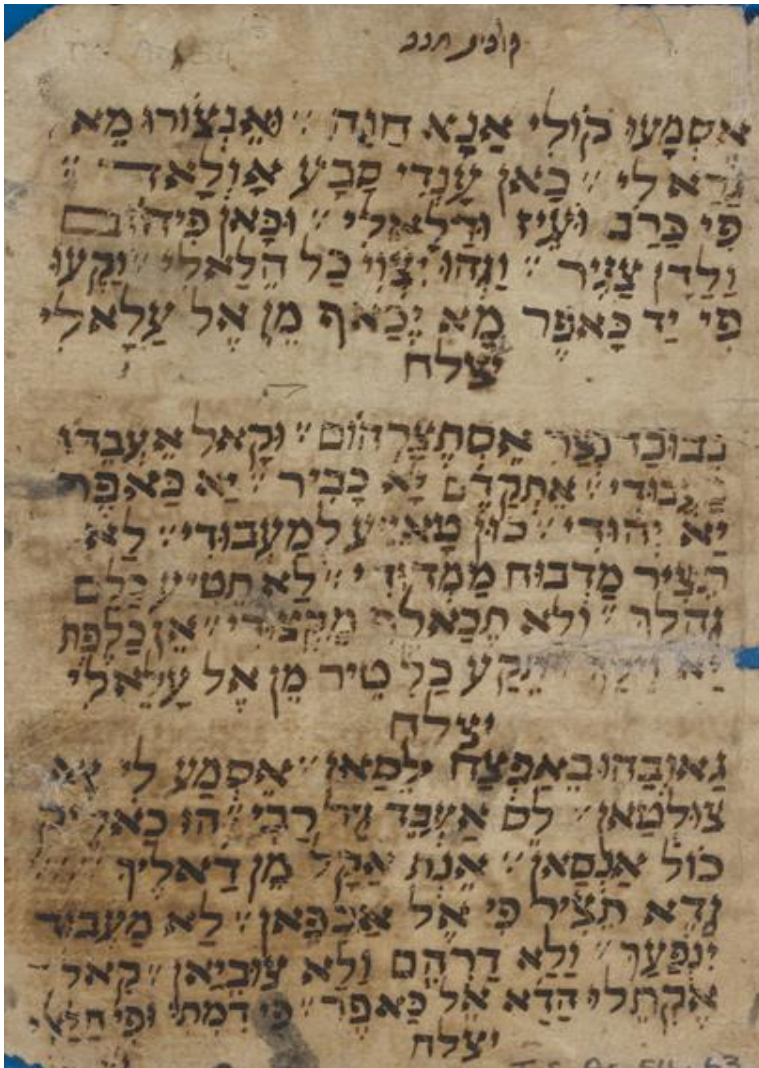 אִסְמָעוּ קוֹלִי אַנָא חַנָה ״ וַאֻנְצֹורוּ מַא
גַרַא לִי ״ כַּאן עָנְדִי סַבָע אַוְלַאד ״
פִי כַּרַב וֹעֵיז וֹדַלַאלִי ״ וכָּאן פִיהוֹם
וַלַדן צַגִיר ״ וַגְהוּ יִצְׁוִי כַל הֵלַאלִי ״ וַקָעוּ
פִי יַד כָּאפֶר מַא יֶכַאף מֵן אֶל עַלָאלִי
יצלח
נבוכד נצר אֵסתֶצַרהוֹם ״ וקַאל אֵעְבֵדוּ
אֵתְקַדֵם יַא כָבִיר ״ יַא כַּאפֶר
יַא יְהוּדִי ״ כוּן טָאיֵע למַעְבוּדִי ״ לַא
תְצִיר מַדְבוּח מַמְדוּדִי ״ לַא תֵטִיע
גַהלַך ״ ולא תֵכַאלֵף מַקְצוּדִי ״ אֵן כַלֵפְת
תֵקַע כַל טֵיר מֵן אֶל עַלַאלִי
יצלח
גַאוְבַהוּ בֵאַפְצַח לֵסַאן ״ אֵסְמַע לִי יַא
צוּלְטַאן ״ לֵם אַעְבֵד גֵיר רַבִּי ״ הוּ כַאלֵיק
כּוֹל אַנְסַאן ״ אֵנְת אַקָל מֵן דַאלִיך
גָדַא תְצִיר פִי אֵל אַכְפַאן ״ לַא מַעְבוּד
יִנְפַעַך ״ וַלַא דַרְהֵם וַלַא צוּבְיַאן ״ קַאל
אֶקְתֵלוּ הַדַא אֵל כַּאפֶר ״ פִי דִמְתִי וּפִי
יצלח